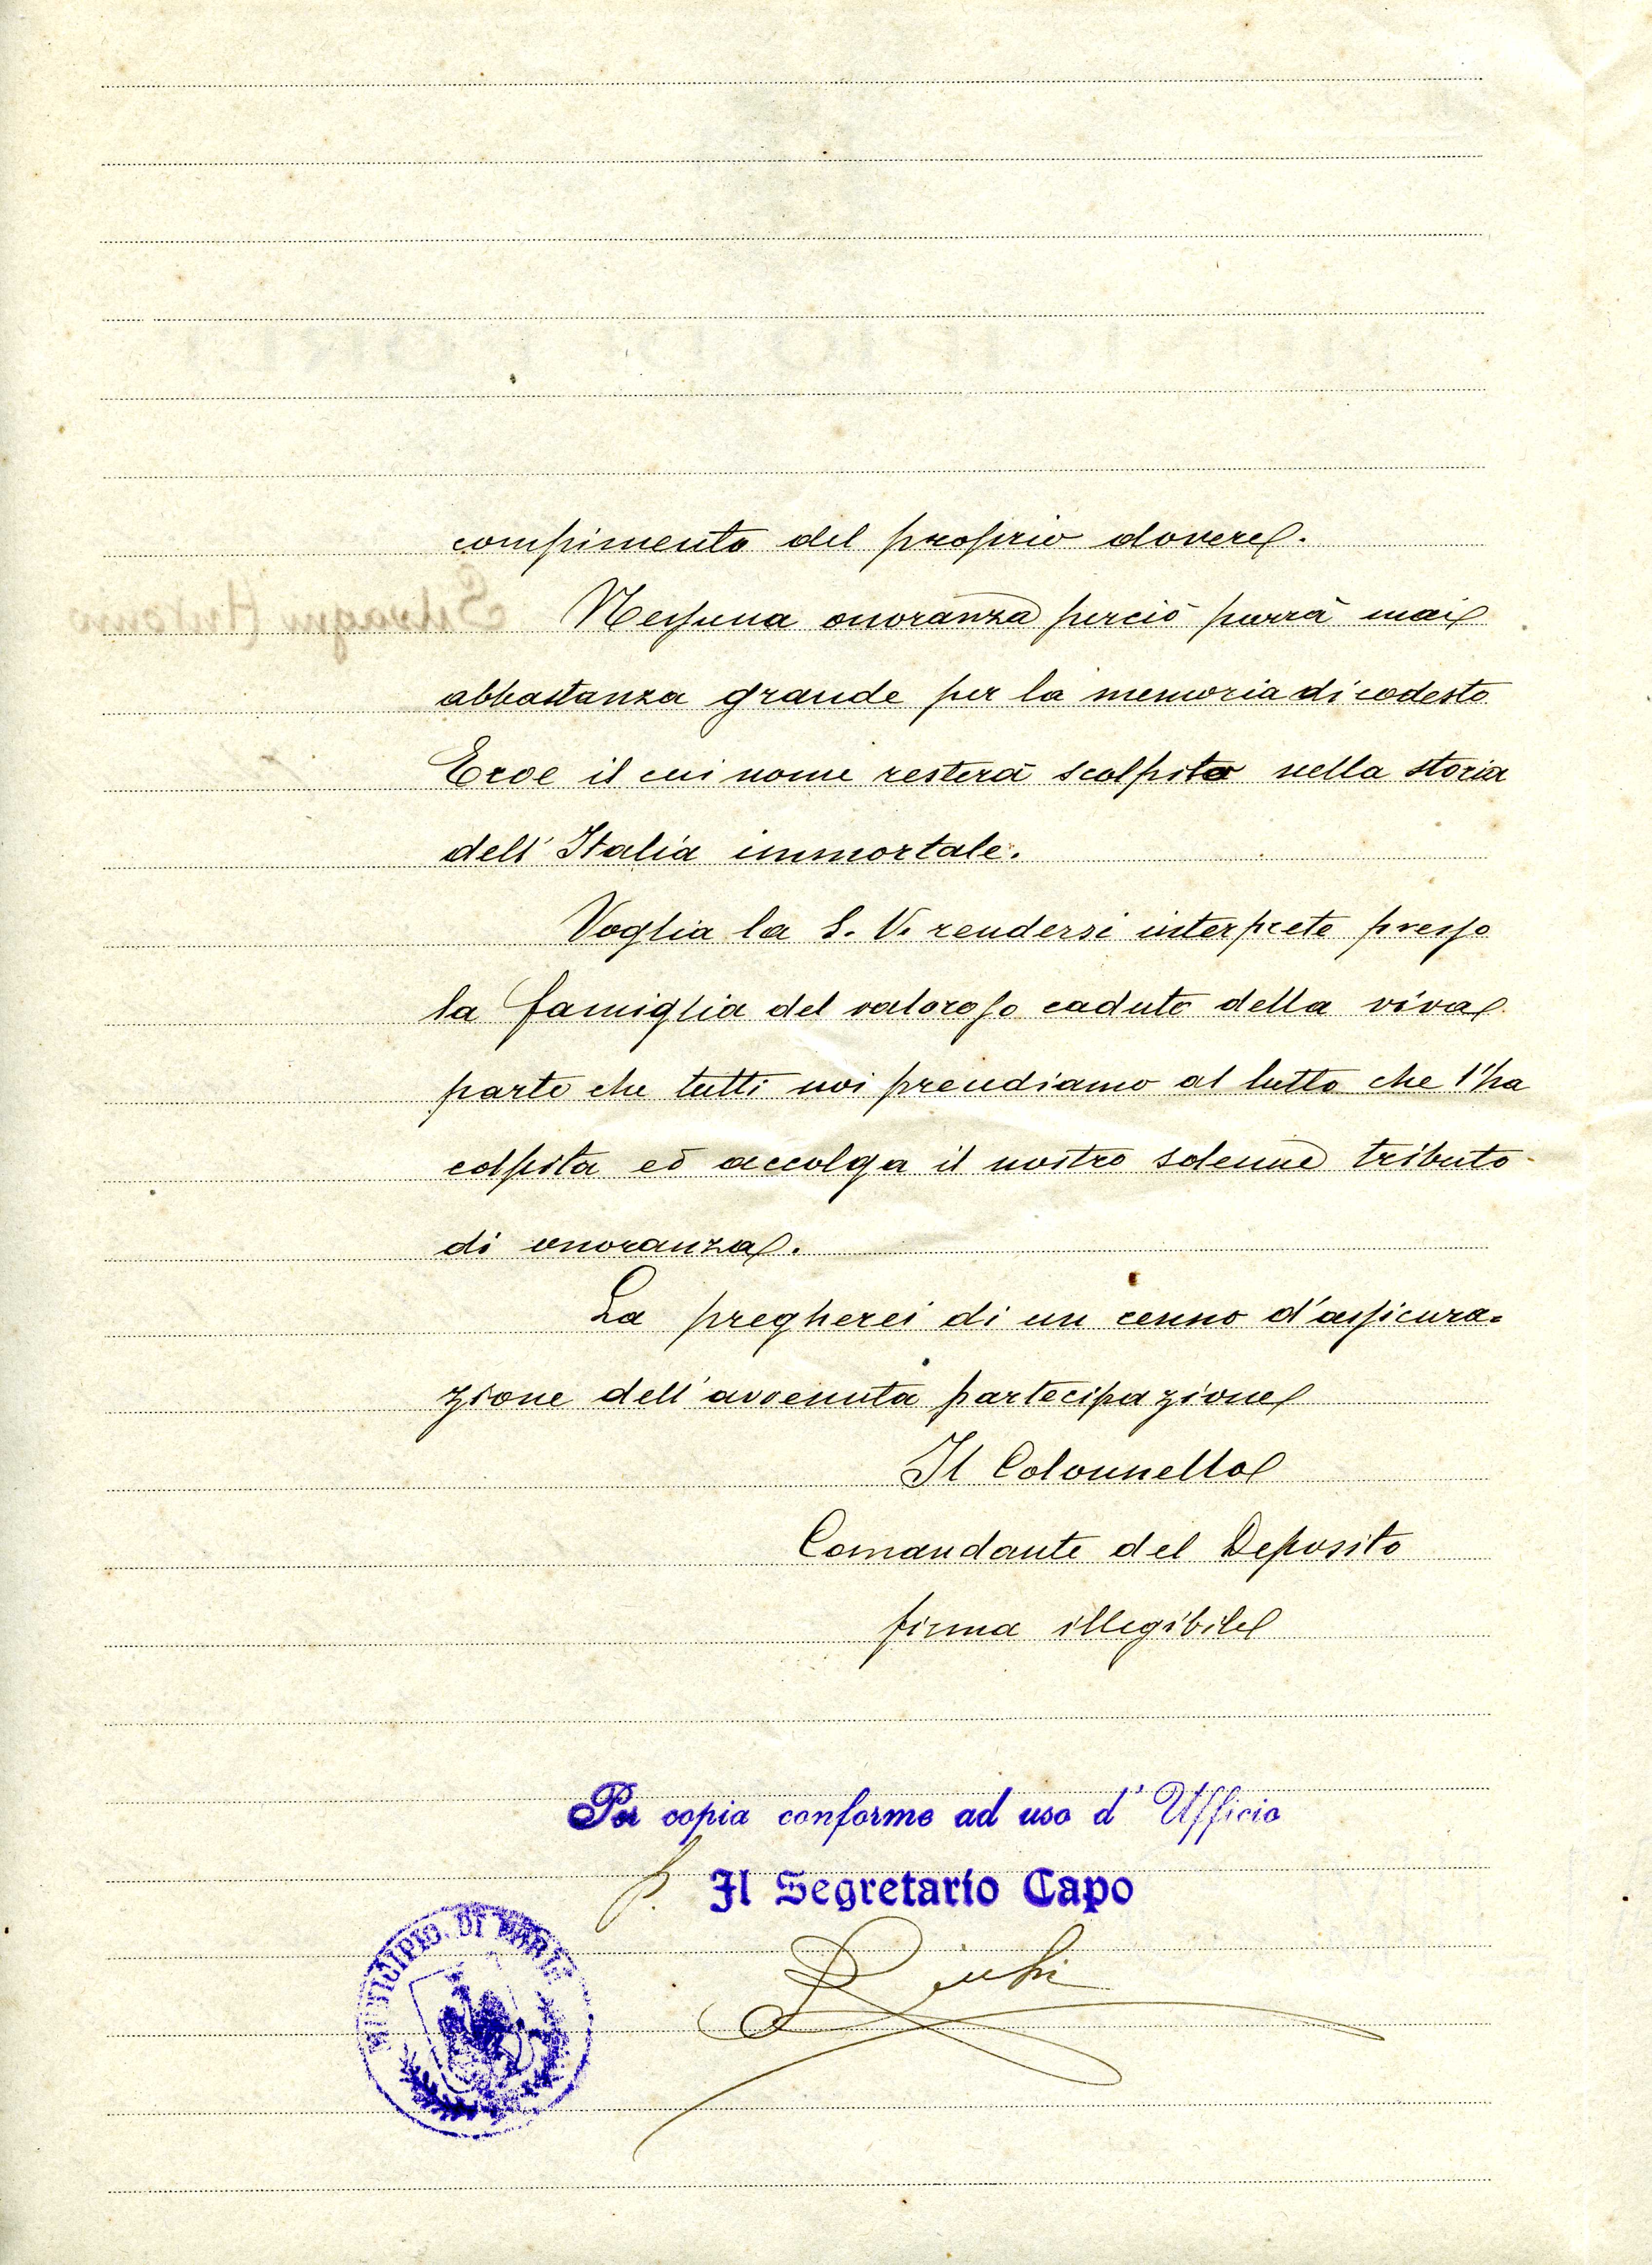 compimento del proprio dovere.
Nessuna onoranza perciò parrà mai
abbastanza grande per la memoria di codesto
Eroe il cui nome resterà scolpito nella storia
dell'Italia immortale.
Voglia la S. V. rendersi interprete presso
la famiglia del valoroso caduto della viva
parte che tutti noi prendiamo al lutto che l'ha
colpita ed accolga il nostro solenne tributo
di onoranza.
La pregherei di un cenno d'assicura=
zione dell'avvenuta partecipazione
Il Colonnello
Comandante del Deposito
firma illegibile
Per copia conforme ad uso d'Ufficio
p. Il Segretario Capo
MUNICIPIO DI FORLÌ